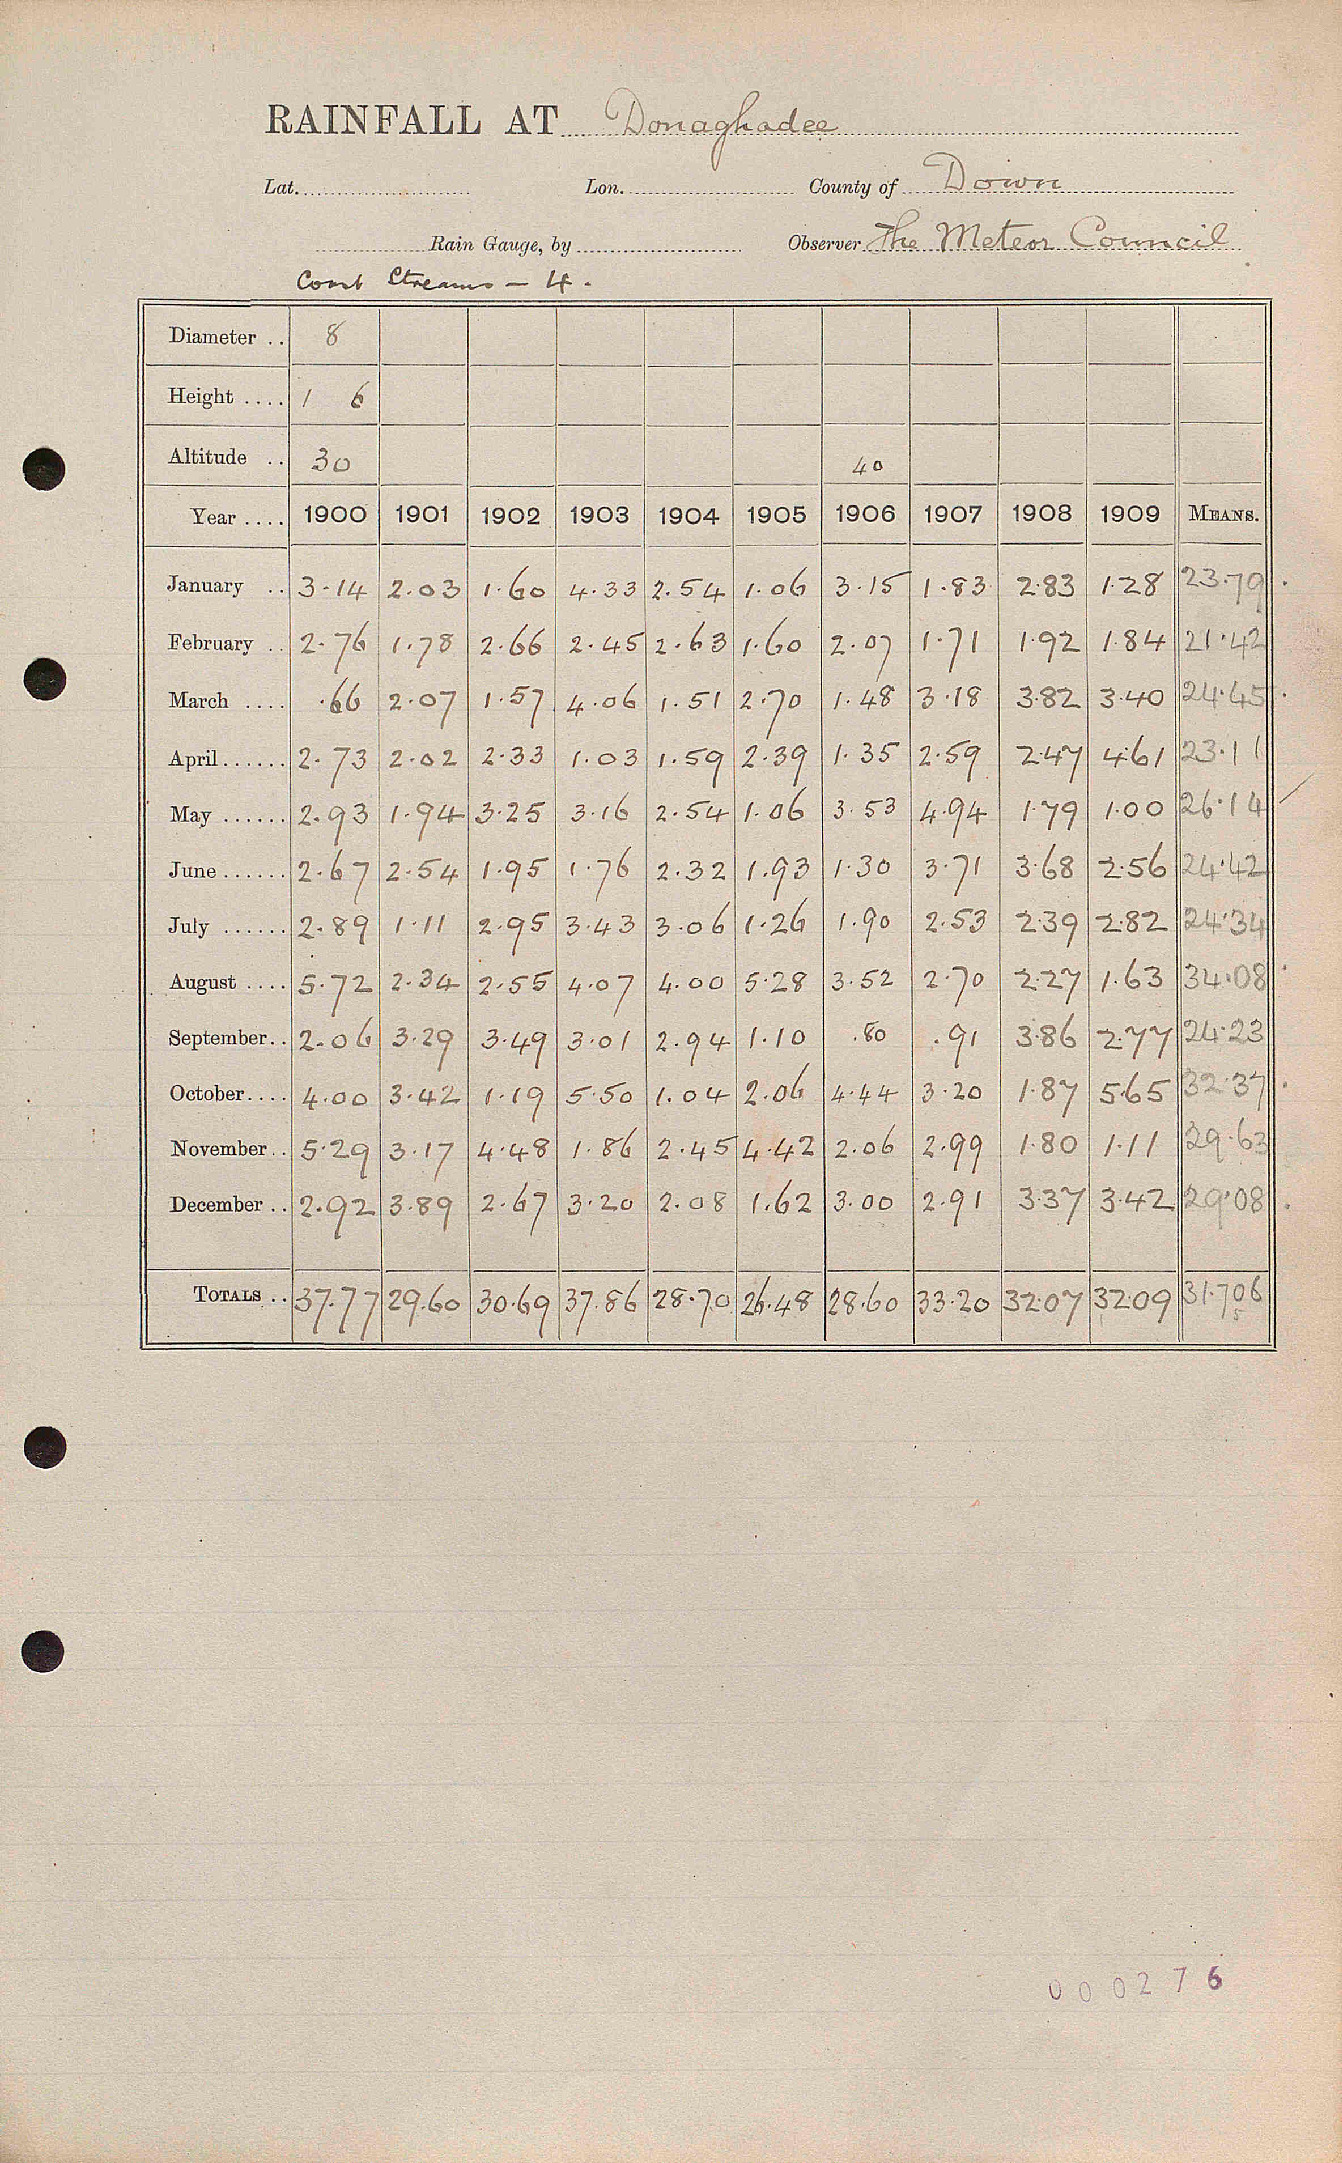 RAINFALL AT Donaghadee
Lat. Lon. County of Down
Rain Gauge, by Observer The Meteor Council
Streams - 4.
Diameter .. 8
Height .... 1 6
Altitude .. 30 40
Year .... 1900 1901 1902 1903 1904 1905 1906 1907 1908 1909 MEANS.
January .. 3.14 2.03 1.60 4.33 2.54 1.06 3.15 1.83 2.83 1.28 23.79
February .. 2.76 1.78 2.66 2.45 2.63 1.60 2.07 1.71 1.92 1.84 21.42
March .... .66 2.07 1.57 4.06 1.51 2.70 1.48 3.18 3.82 3.40 24.45
April...... 2.73 2.02 2.33 1.03 1.59 2.39 1.35 2.59 2.47 4.61 23.11
May ...... 2.93 1.94 3.25 3.16 2.54 1.06 3.53 4.94 1.79 1.00 26.14
June...... 2.67 2.54 1.95 1.76 2.32 1.93 1.30 3.71 3.68 2.56 24.42
July ...... 2.89 1.11 2.95 3.43 3.06 1.26 1.90 2.53 2.39 2.82 24.34
August .... 5.72 2.34 2.55 4.07 4.00 5.28 3.52 2.70 2.27 1.63 34.08
September.. 2.06 3.29 3.49 3.01 2.94 1.10 .80 .91 3.86 2.77 24.23
October.... 4.00 3.42 1.19 5.50 1.04 2.06 4.44 3.20 1.87 5.65 32.37
November.. 5.29 3.17 4.48 1.86 2.45 4.42 2.06 2.99 1.80 1.11 29.63
December .. 2.92 3.89 2.67 3.20 2.08 1.62 3.00 2.91 3.37 3.42 29.08
TOTALS .. 37.77 29.60 30.69 37.86 28.70 26.48 28.60 33.20 32.07 32.09 31.706
5
000276